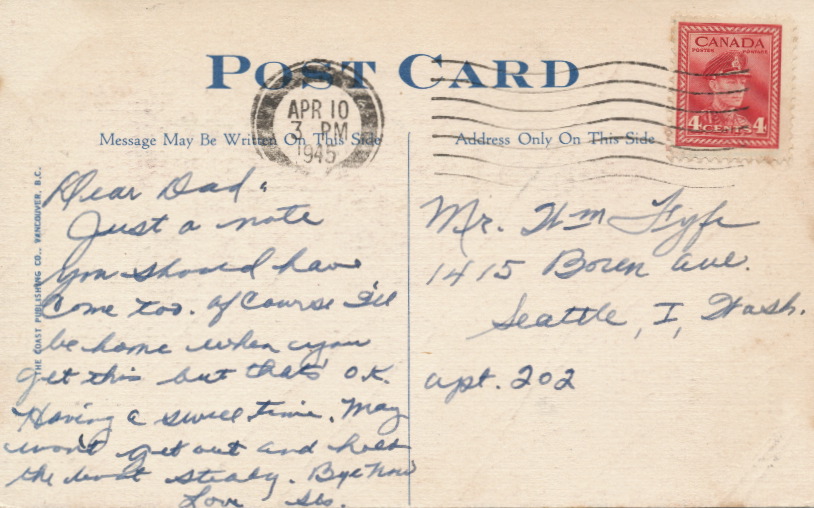 POST CARD
CANADA
POSTES POSTAGE
4 CENTS 4
APR 10
3 PM
1945
Message May Be Written On This Side
Address Only On This Side
THE COAST PUBLISHING CO., VANCOUVER, B.C.
Dear Dad,
Just a note
you should have
come too. Of course I'll
be home when you
get this but that's O.K.
Having a swell time. May
won't get out and hold
the boat steady. Bye now
Love
Mr. Wm Fyfe
1415 Boren Ave.
Seattle, 1, Wash.
apt. 202